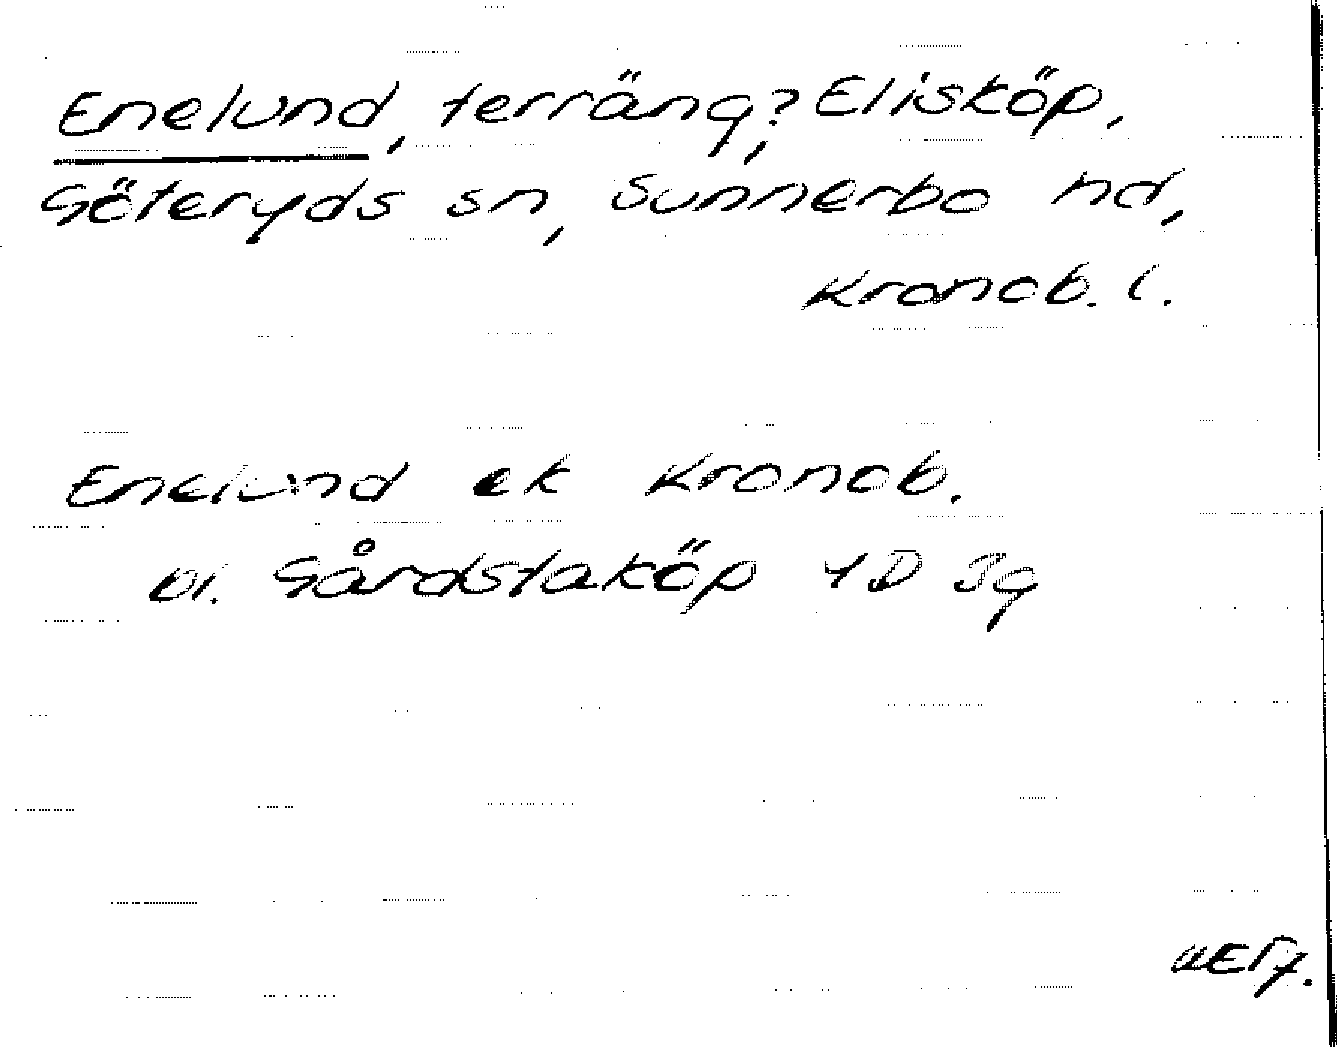 Enelund, terräng?, Elisköp,
Göteryds sn, Sunnerbo hd,
Kronob. l.
Enelund ek Kronob.
bl. Gårdstaköp 4D Jg